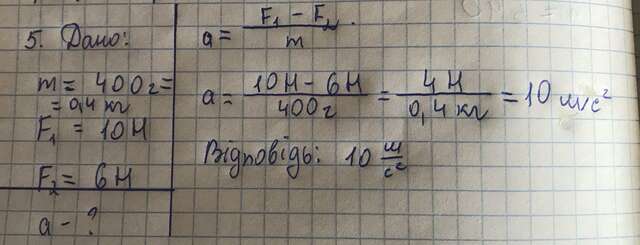 5. Дано:
m = 400г =
= 0,4 кг
F₁ = 10Н
F₂ = 6Н
a - ?
a = (F₁ - F₂)/m.
a = (10Н - 6Н)/400г = 4Н/0,4кг = 10 м/с²
Відповідь: 10 м/с²